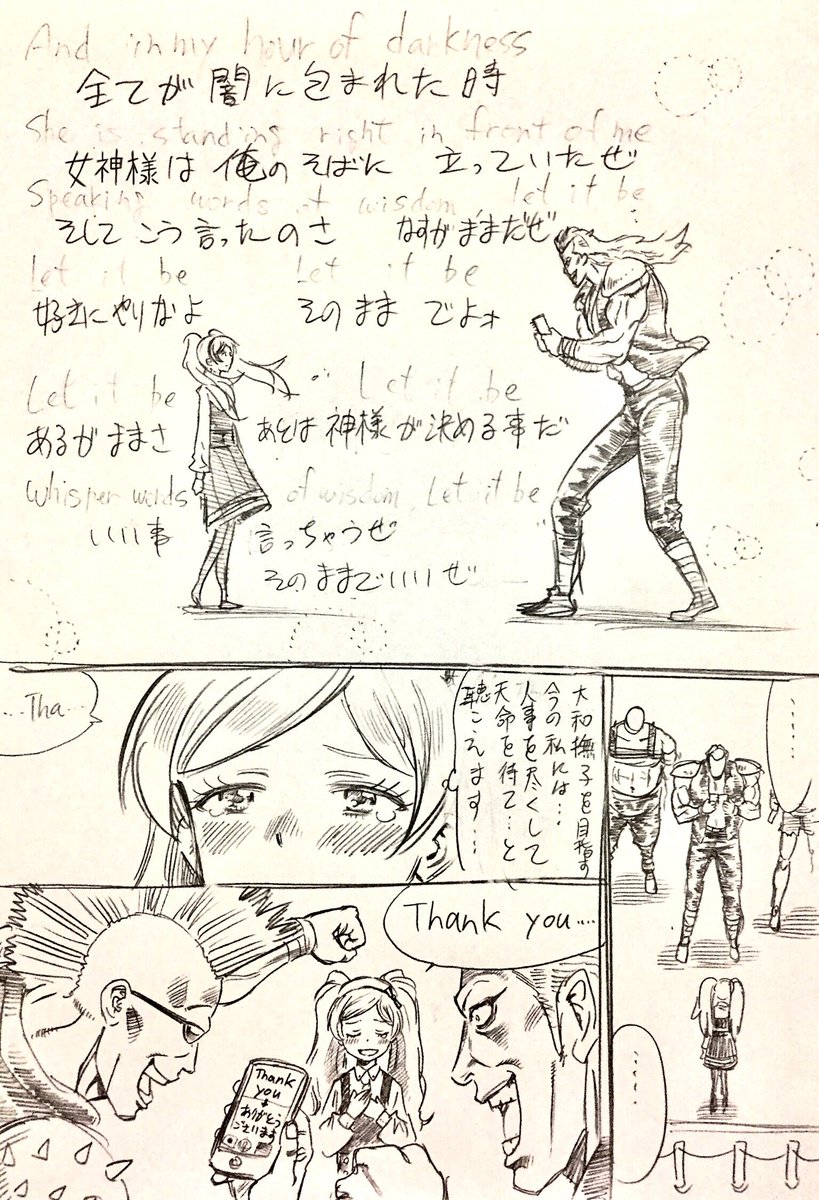 And in my hour of darkness
全てが闇に包まれた時
She is standing right in front of me
女神様は俺のそばに 立っていたぜ
Speaking words of wisdom, let it be
そしてこう言ったのさ なすがままだぜ
Let it be Let it be
好きにやりなよ そのままでよォ
Let it be Let it be
あるがままさ あとは神様が決める事だ
Whisper words of wisdom, Let it be
いい事 言っちゃうぜ
そのままでいいぜ
......
大和撫子を目指す
今の私には…
人事を尽くして
天命を待て…と
聴こえます…
...Tha...
....
Thank you....
Thank
you
↓
ありがとう
ございます